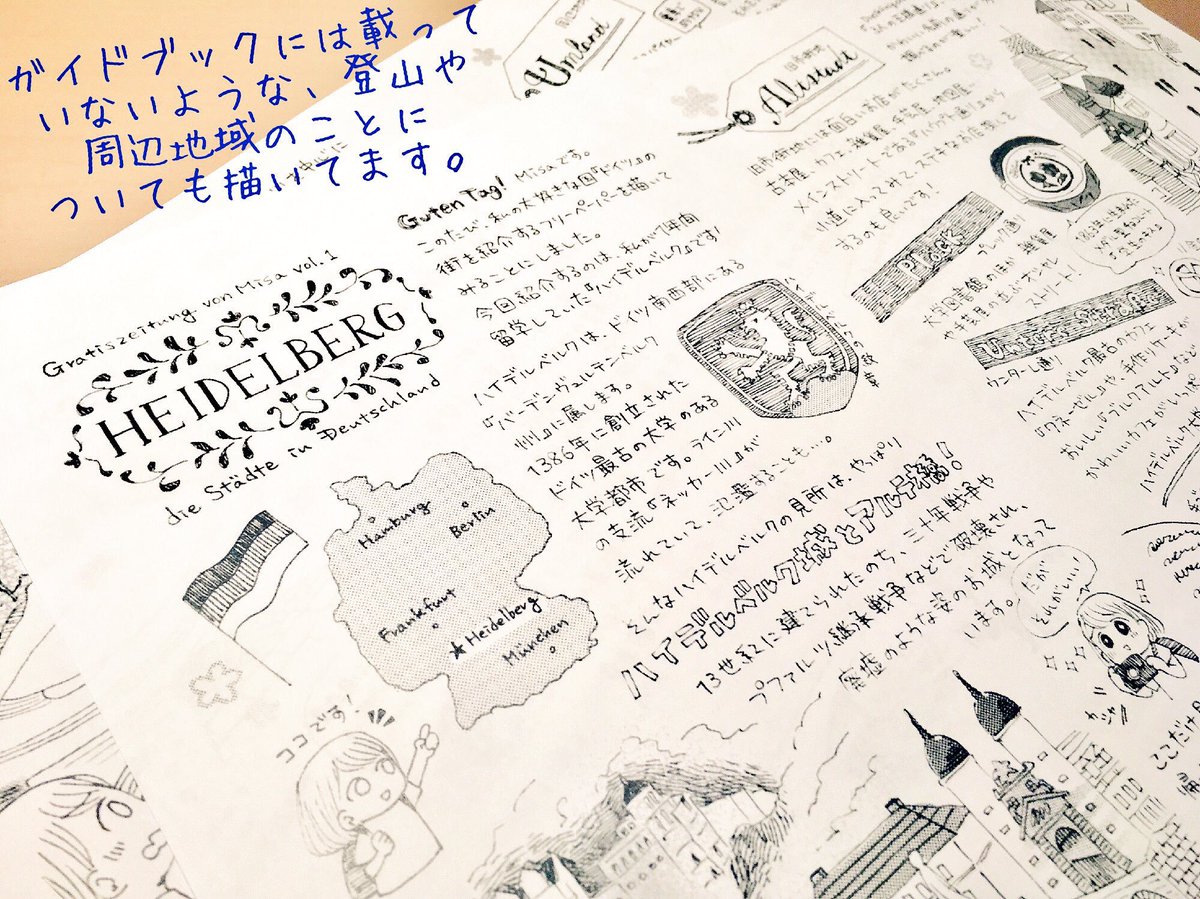 ガイドブックには載って
いないような、登山や
周辺地域のことに
ついても描いてます。
Gratiszeitung von Misa vol.1
HEIDELBERG
die Städte in Deutschland
Hamburg
Berlin
Frankfurt
★Heidelberg
München
ココです!
Guten Tag! Misaです。
このたび、私の大好きな国『ドイツ』の
街を紹介するフリーペーパーを描いて
みることにしました。
今回紹介するのは、私が1年間
留学していた『ハイデルベルク』です!
ハイデルベルクは、ドイツ南西部にある
『バーデンヴュルテンベルク
州』に属します。
1386年に創立された
ドイツ最古の大学のある
大学都市です。ライン川
の支流『ネッカー川』が
流れていて、氾濫することも…。
そんなハイデルベルクの見所は、やっぱり
ハイデルベルク城とアルテ橋!
13世紀に建てられたのち、三十年戦争や
プファルツ継承戦争などで破壊され、
廃墟のような姿のお城となって
います。
だが
それがいい…
Umland
Altstadt
旧市街地には面白いお店がたくさん。
メインストリートである
小道に入ってみて、ステキなお店を
するのも良いです。
Plöck
プレック通
大学図書館のほか、雑貨
や本屋の並ぶオシャレ
ストリート!
Untere Straße
ウンテレ通り
ハイデルベルク最古のカフェ
『クネーゼル』や、手作りケーキが
かわいいカフェがいっぱい
ここだけ